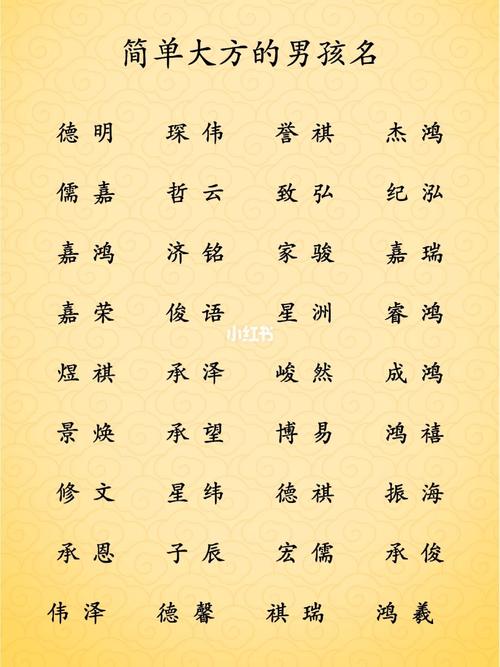 简单大方的男孩名
德明 琛伟 誉祺 杰鸿
儒嘉 哲云 致弘 纪泓
嘉鸿 济铭 家骏 嘉瑞
嘉荣 俊语 星洲 睿鸿
小红书
煜祺 承泽 峻然 成鸿
景焕 承望 博易 鸿禧
修文 星纬 德祺 振海
承恩 子辰 宏儒 承俊
伟泽 德馨 祺瑞 鸿羲